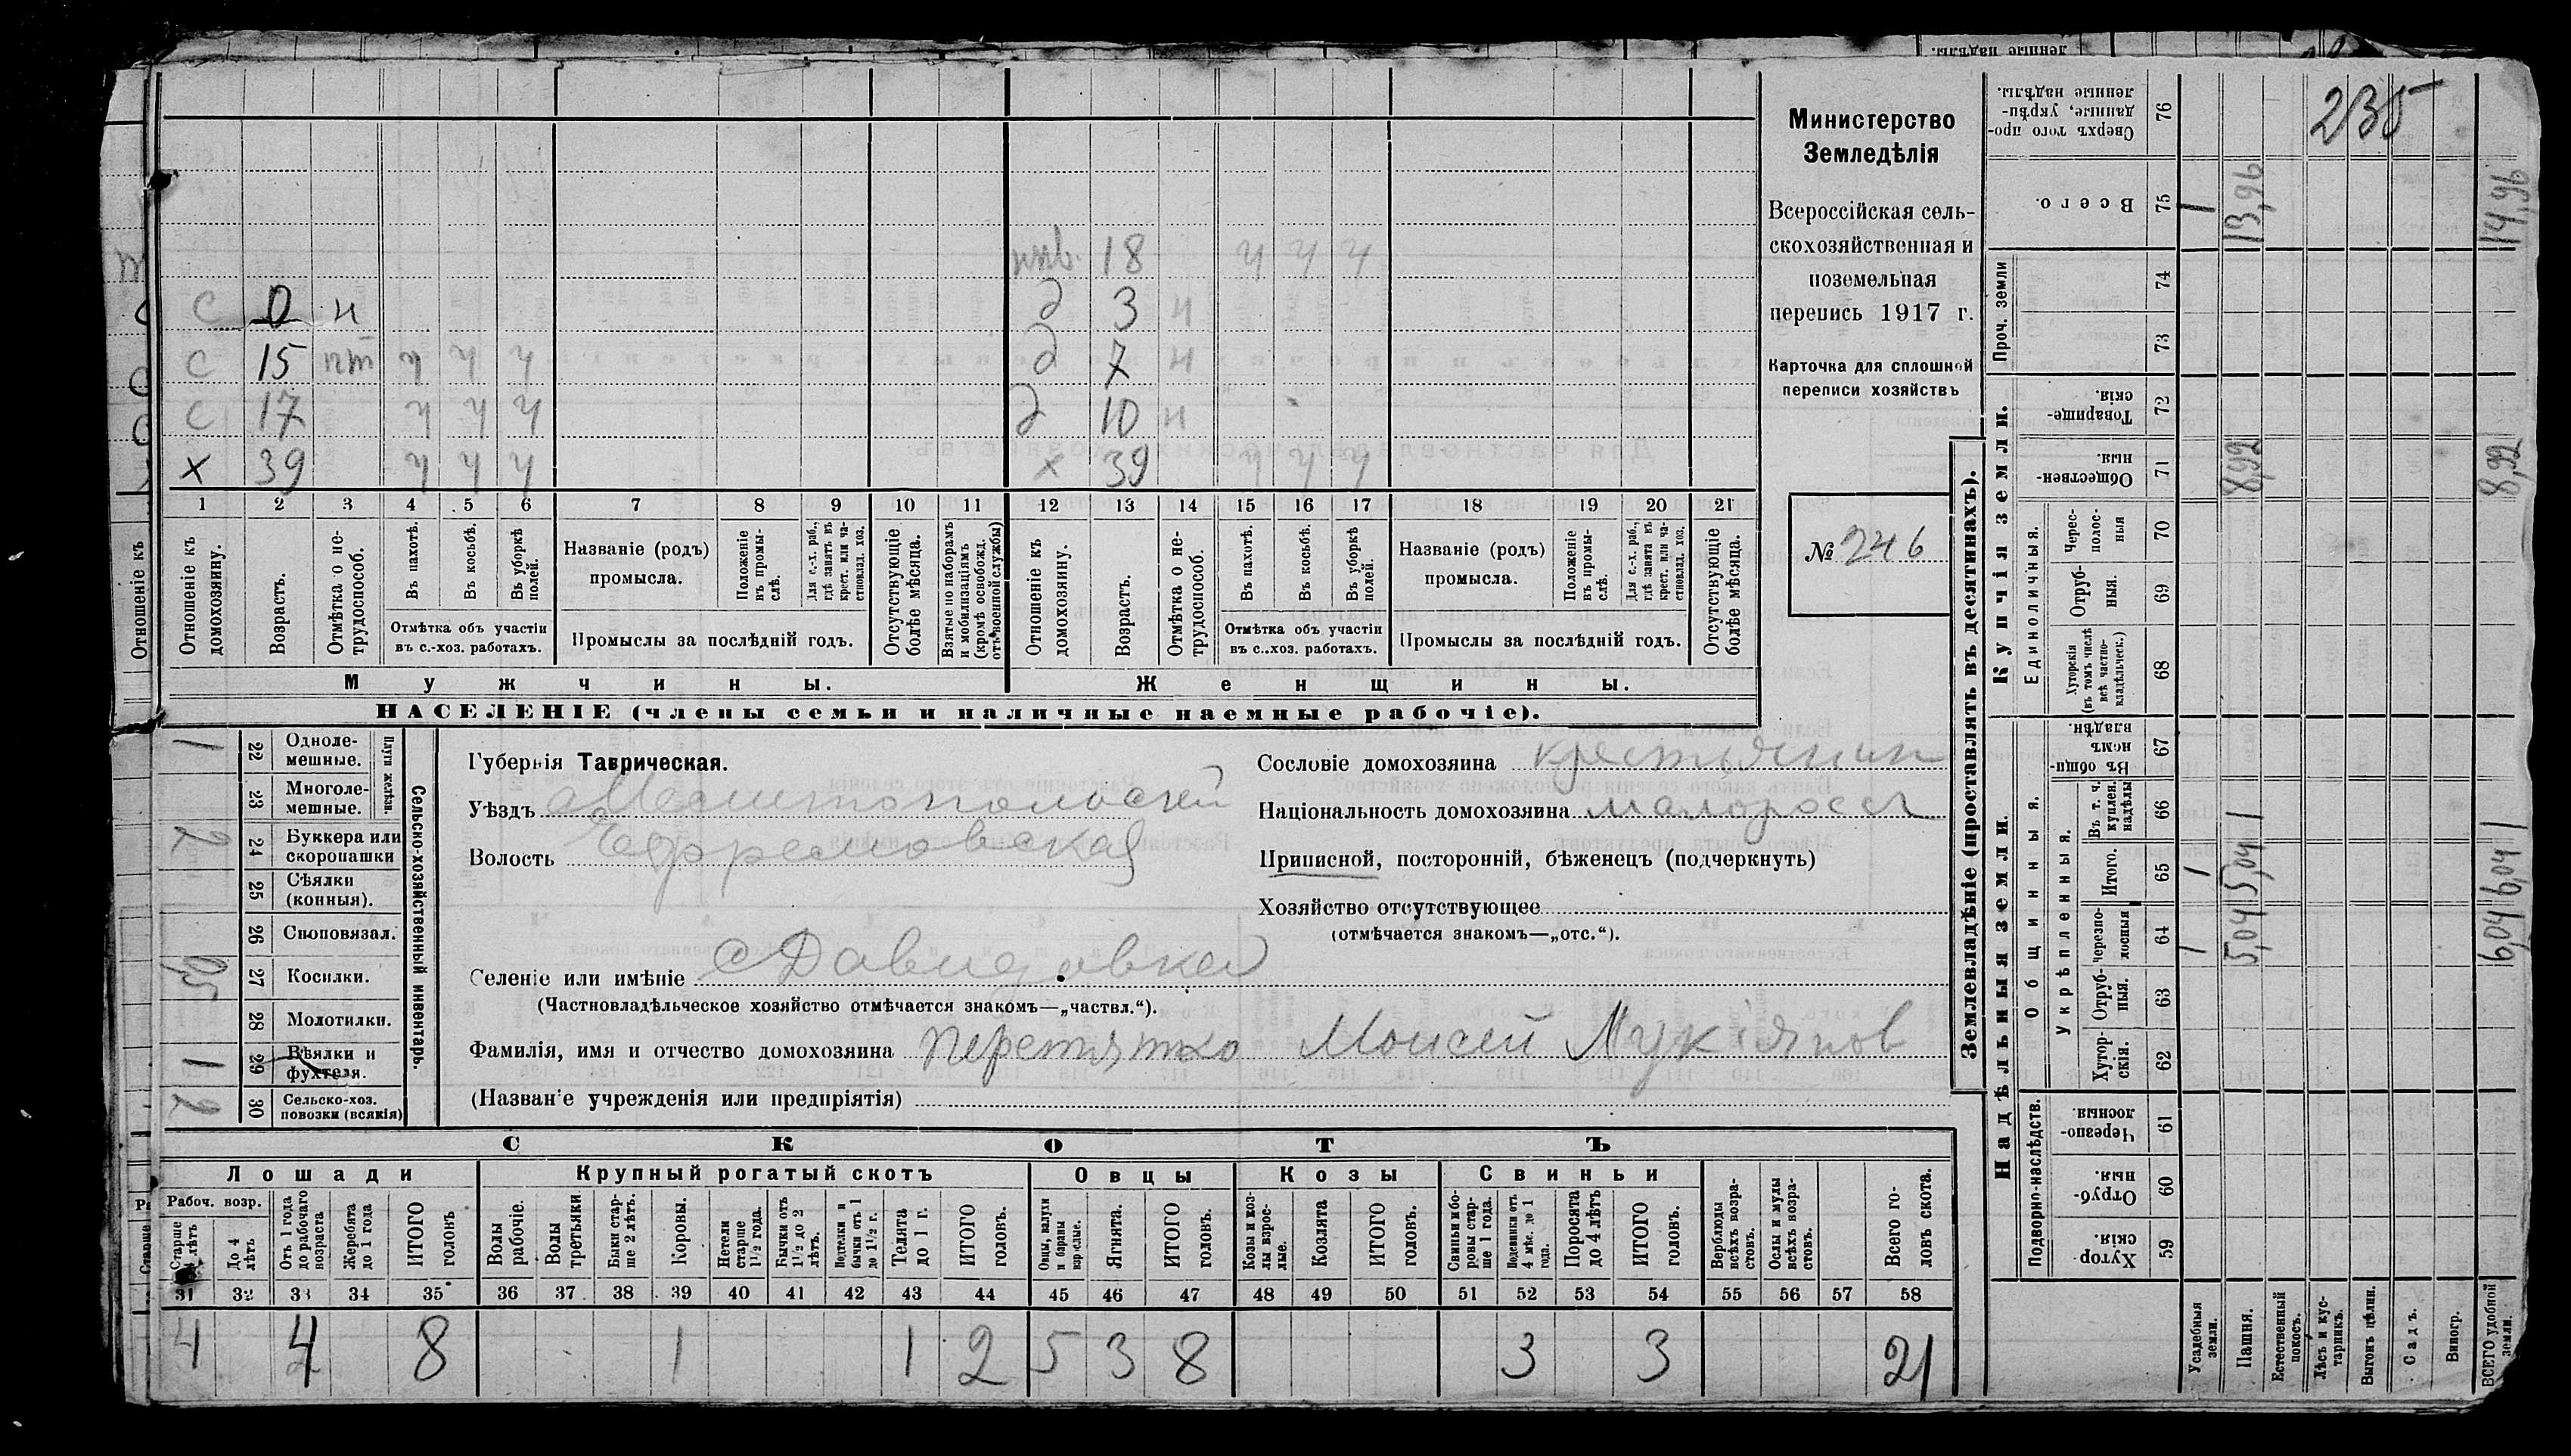 235
Министерство
Земледѣлія
Всероссійская сель-
скохозяйственная и
поземельная
перепись 1917 г.
Карточка для сплошной
переписи хозяйствъ
№ 246
18 ч ч ч
С 0 н д 3 н
С 15 пт ч ч ч д 7 н
С 17 ч ч ч д 10 н
х 39 ч ч ч х 39 ч ч ч
1 2 3 4 5 6 7 8 9 10 11 12 13 14 15 16 17 18 19 20 21
Отношеніе къ домохозяину.
Возрастъ.
Отмѣтка о не-трудоспособ.
Въ пахотѣ.
Въ косьбѣ.
Въ уборкѣ полей.
Отмѣтка объ участіи
въ с.-хоз. работахъ.
Названіе (родъ)
промысла.
Положеніе въ промы-слѣ.
Для с.-х. раб., гдѣ занятъ въ крест. или ча-стновлад. хоз.
Промыслы за послѣдній годъ.
Отсутствующіе болѣе мѣсяца.
Взятые по наборамъ и мобилизаціямъ (кромѣ освобожд. отъ военной службы)
Отношеніе къ домохозяину.
Возрастъ.
Отмѣтка о не-трудоспособ.
Въ пахотѣ.
Въ косьбѣ.
Въ уборкѣ полей.
Отмѣтка объ участіи
въ с..хоз. работахъ.
Названіе (родъ)
промысла.
Положеніе въ промы-слѣ.
Для с.-х. раб., гдѣ занята въ крест. или ча-стновлад. хоз.
Промыслы за послѣдній годъ.
Отсутствующіе болѣе мѣсяца.
Мужчины.
Женщины.
НАСЕЛЕНІЕ (члены семьи и наличные наемные рабочіе).
Сельско-хозяйственный инвентарь.
Плуги желѣзн.
1 22 Одноле-мешные.
23 Многоле-мешные.
2 24 Буккера или скоропашки
25 Сѣялки (конныя).
26 Сноповязал.
0,5 27 Косилки.
28 Молотилки.
1 29 Вѣялки и фухтеля.
2 30 Сельско-хоз. повозки (всякія)
Губернія Таврическая.
Уѣздъ Мелитопольскій
Волость Ефремовская
Сословіе домохозяина крестьянин
Національность домохозяина малоросс
Приписной, посторонній, бѣженецъ (подчеркнуть)
Хозяйство отсутствующее
(отмѣчается знакомъ—„отс.“).
Селеніе или имѣніе с Давидовка
(Частновладѣльческое хозяйство отмѣчается знакомъ—„частвл.“).
Фамилія, имя и отчество домохозяина Перетятко Моисей Лукіянов
(Названіе учрежденія или предпріятія)
СКОТЪ
Лошади
Крупный рогатый скотъ
Овцы
Козы
Свиньи
Рабоч. возр.
Старше 4 лѣтъ
До 4 лѣтъ
Отъ 1 года до рабочаго возраста
Жеребята до 1 года
ИТОГО головъ
Волы рабочіе.
Волы третьяки.
Быки стар-ше 2 лѣтъ.
Коровы.
Нетели старше 1½ года.
Бычки отъ 1½ до 2 лѣтъ.
Подтелки и бычки отъ 1 до 1½ г.
Телята до 1 г.
ИТОГО головъ.
Овцы, валухи и бараны взрослые.
Ягнята.
ИТОГО головъ.
Козы и коз-лы взрос-лые.
Козлята
ИТОГО головъ.
Свиньи и бо-ровы стар-ше 1 года.
Подсвинки отъ 4 мѣс. до 1 года.
Поросята до 4 лѣтъ
ИТОГО головъ.
Верблюды всѣхъ возра-стовъ.
Ослы и мулы всѣхъ возра-стовъ.
Всего го-ловъ скота.
31 32 33 34 35 36 37 38 39 40 41 42 43 44 45 46 47 48 49 50 51 52 53 54 55 56 57 58
4 4 8 1 1 2 5 3 8 3 3 21
Землевладѣніе (проставлять въ десятинахъ).
Надѣльныя земли.
Купчія земли.
Подворно-наслѣдств.
Общинныя.
Укрѣпленныя.
Единоличныя.
Проч. земли
59 Хутор-скія.
60 Отруб-ныя.
61 Черезпо-лосныя
62 Хутор-скія.
63 Отруб-ныя.
64 Черезпо-лосныя
65 Итого.
66 Въ т. ч. куплен. надѣлы
67 Въ общи-номъ владѣн.
68 Хуторскія (въ томъ числѣ всѣ частно-владѣльческ.)
69 Отруб-ныя.
70 Черес-полос-ныя
71 Обществен-ныя.
72 Товарище-скія.
73
74
75 Всего.
76 Сверхъ того про-данные, укрѣп-ленные надѣлы.
Усадебныя земли. 1 1 1
Пашня. 5,04 5,04 8,92 13,96
Естественный покосъ.
Лѣсъ и кус-тарникъ.
Выгонъ цѣлин.
Садъ.
Виногр.
ВСЕГО удобной земли. 6,04 6,04 8,92 14,96